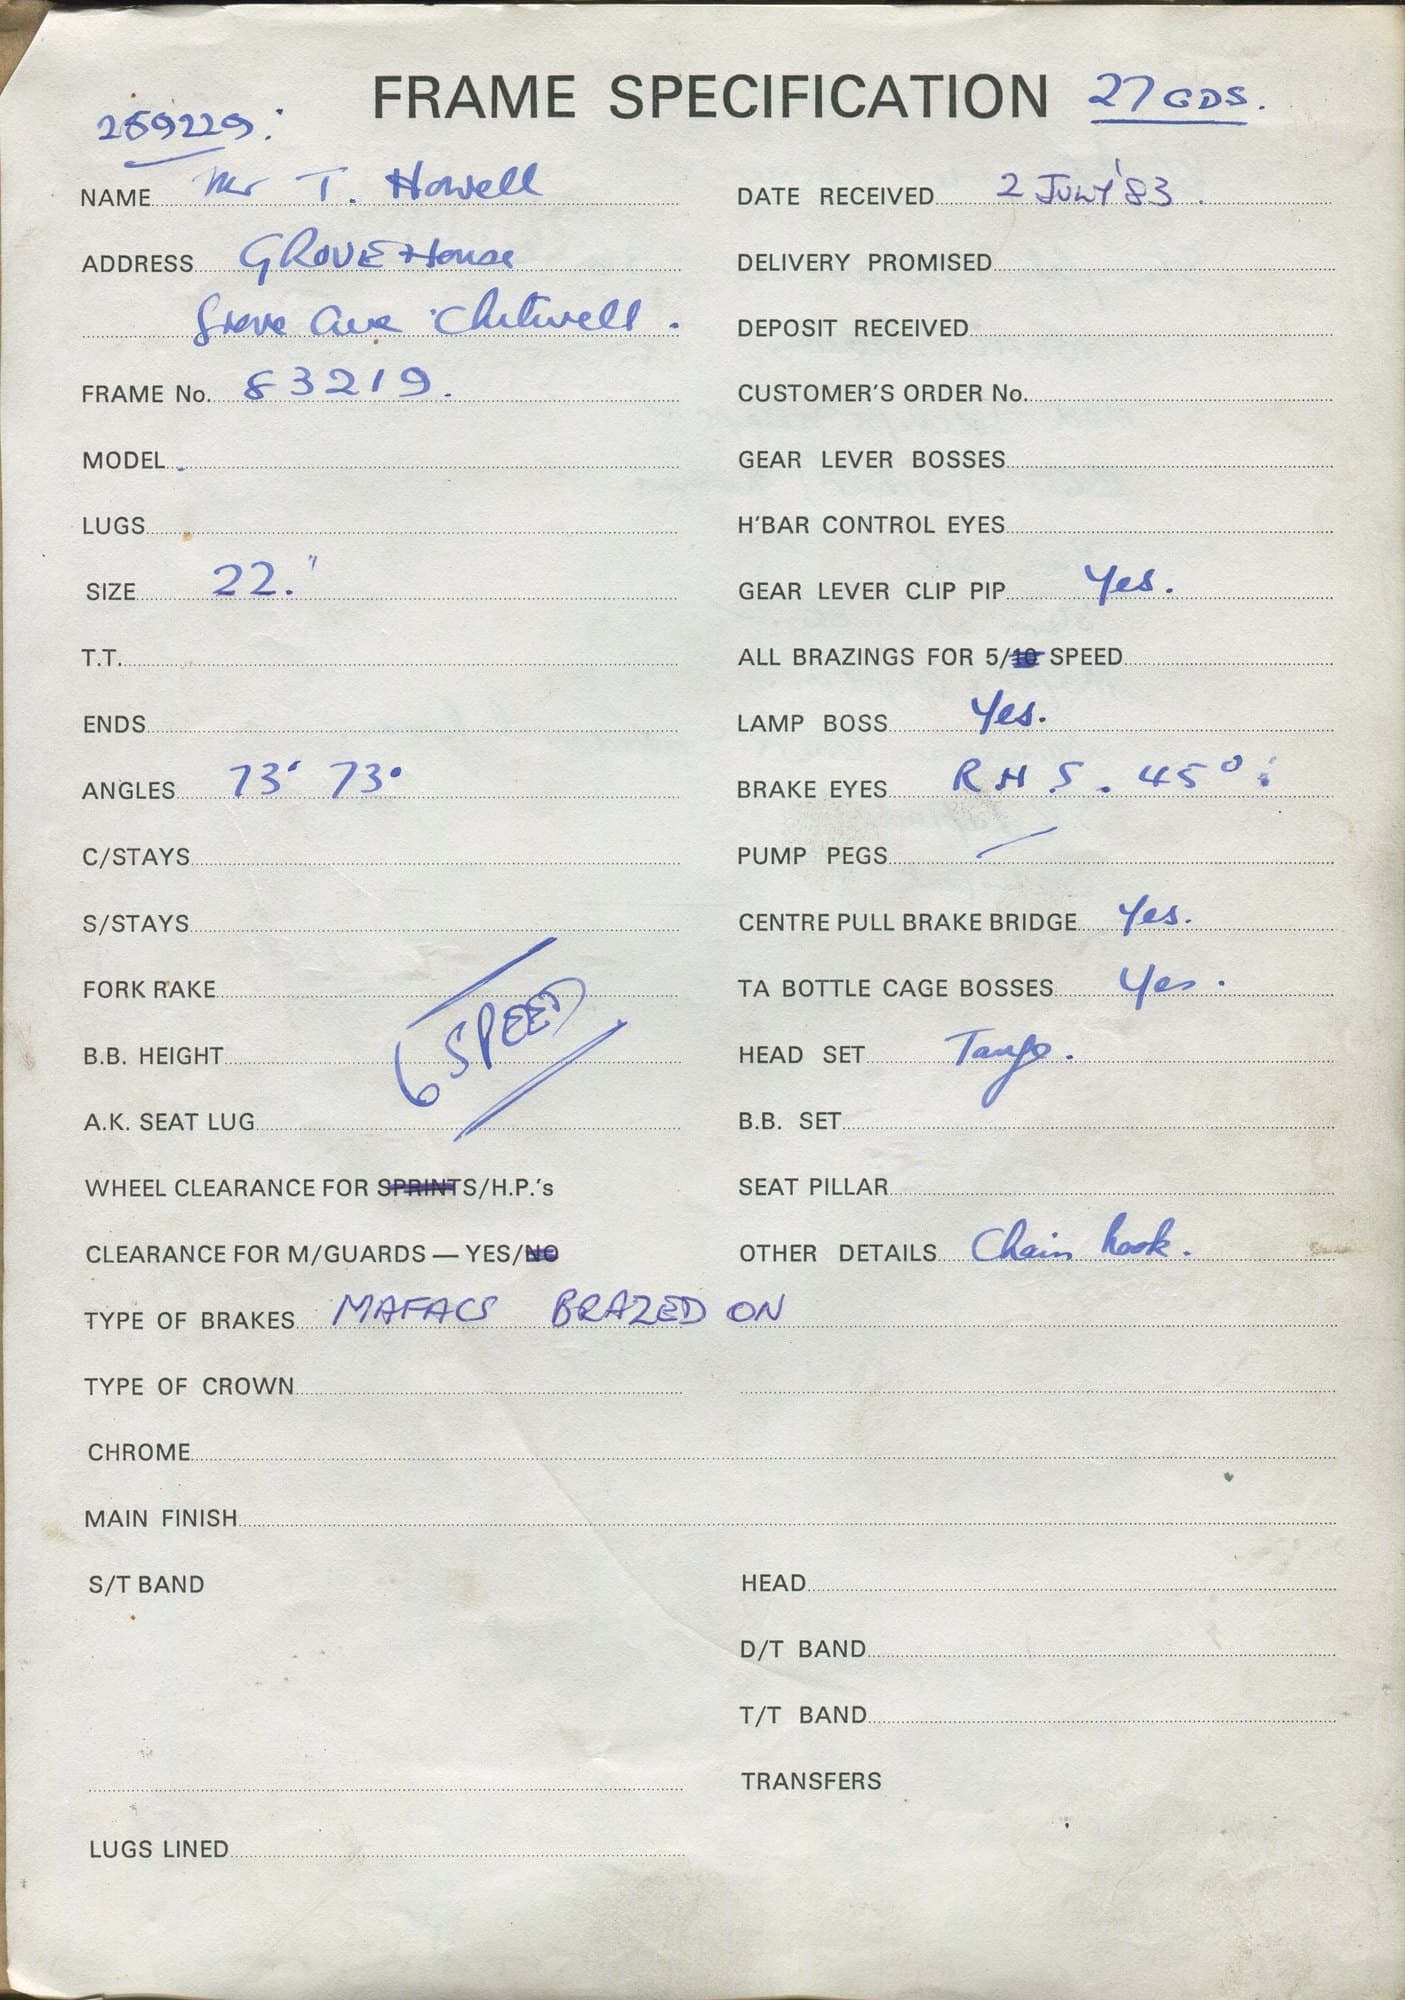 FRAME SPECIFICATION 27 GDS.
259229.
NAME Mr T. Howell
ADDRESS GROVE House
Grove Ave Chilwell.
FRAME No. 83219.
MODEL
LUGS
SIZE 22."
T.T.
ENDS
ANGLES 73° 73°
C/STAYS
S/STAYS
FORK RAKE
B.B. HEIGHT
6 SPEED
A.K. SEAT LUG
WHEEL CLEARANCE FOR SPRINTS/H.P.'s
CLEARANCE FOR M/GUARDS — YES/NO
DATE RECEIVED 2 JULY '83.
DELIVERY PROMISED
DEPOSIT RECEIVED
CUSTOMER'S ORDER No.
GEAR LEVER BOSSES
H'BAR CONTROL EYES
GEAR LEVER CLIP PIP Yes.
ALL BRAZINGS FOR 5/10 SPEED
LAMP BOSS Yes.
BRAKE EYES R H S. 45°.
PUMP PEGS
CENTRE PULL BRAKE BRIDGE Yes.
TA BOTTLE CAGE BOSSES Yes.
HEAD SET Tange.
B.B. SET
SEAT PILLAR
OTHER DETAILS Chain hook.
TYPE OF BRAKES MAFACS BRAZED ON
TYPE OF CROWN
CHROME
MAIN FINISH
S/T BAND
HEAD
D/T BAND
T/T BAND
TRANSFERS
LUGS LINED